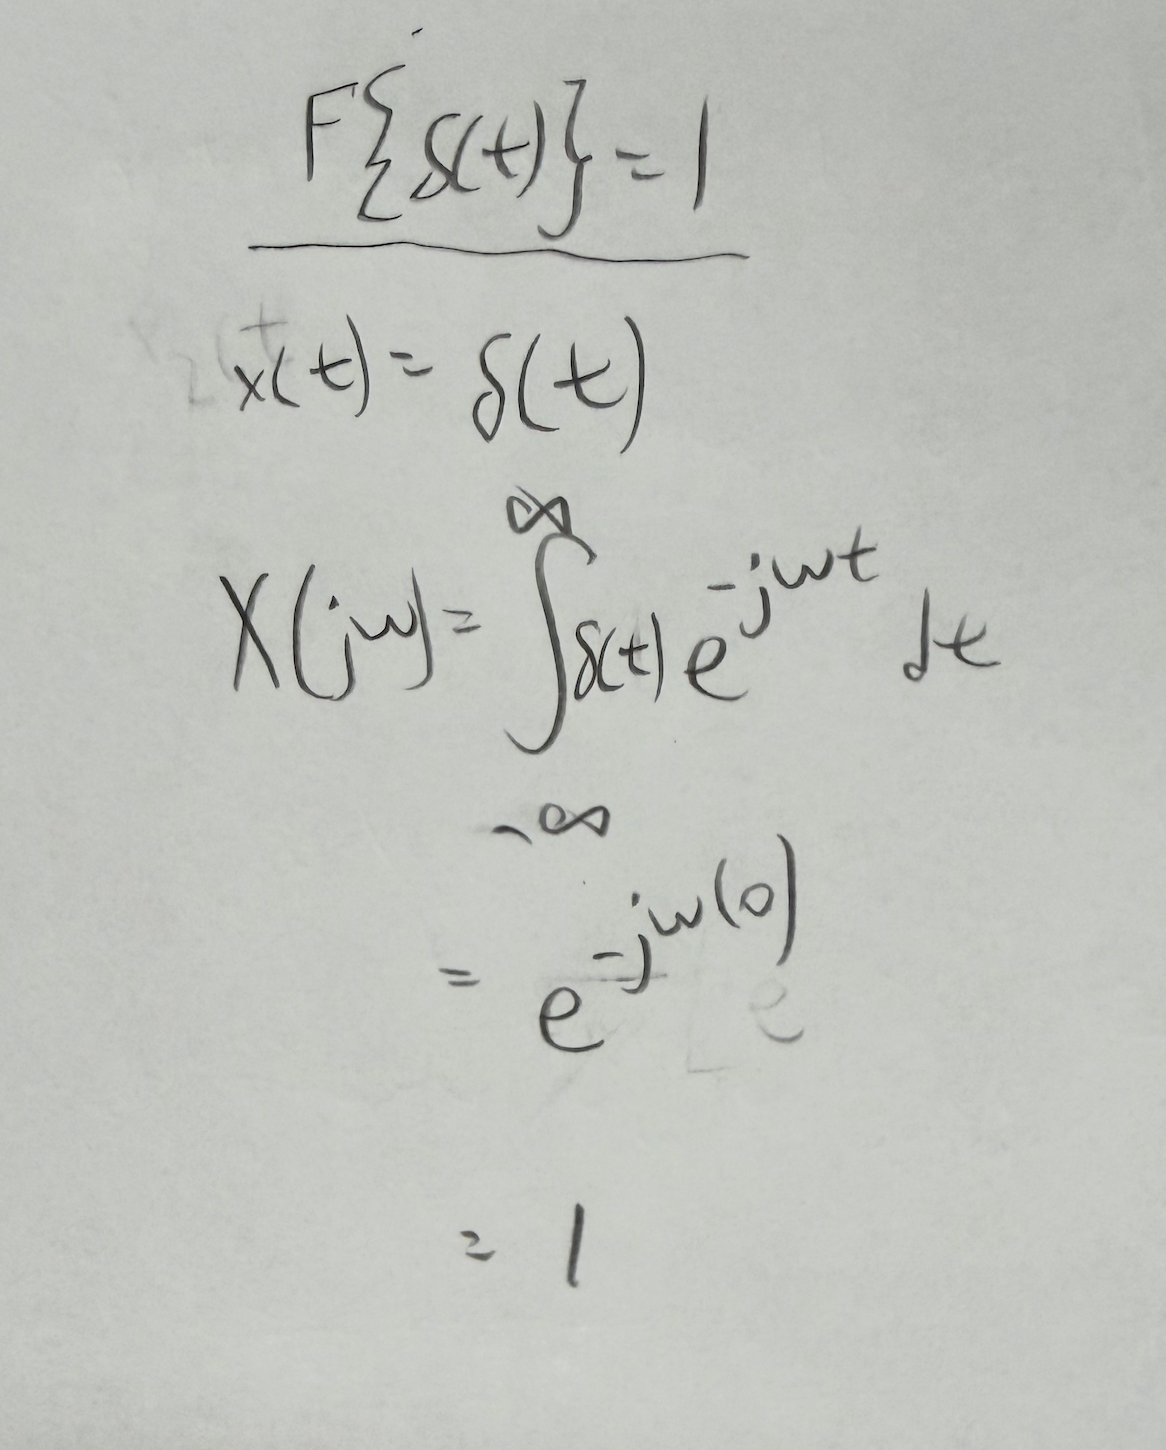 F{δ(t)} = 1
x(t) = δ(t)
X(jω) = ∫_{-∞}^{∞} δ(t) e^{-jωt} dt
= e^{-jω(0)}
= 1